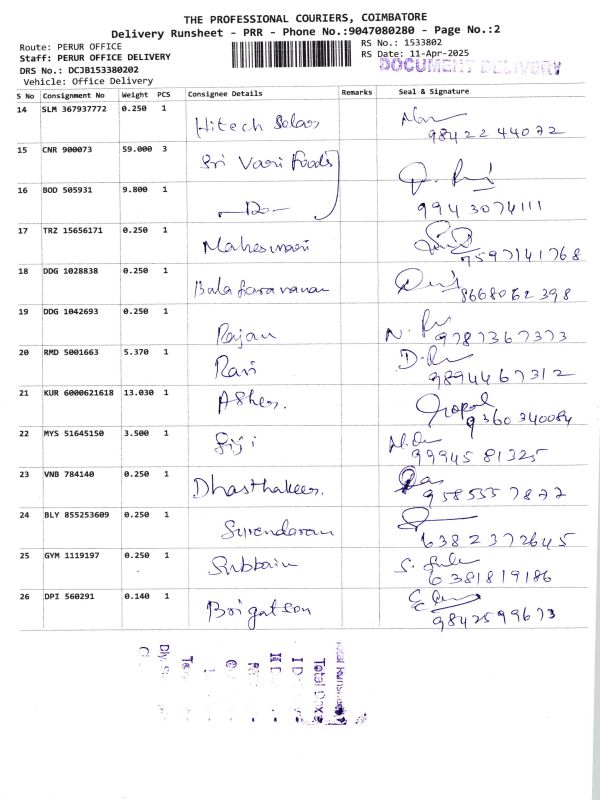 THE PROFESSIONAL COURIERS, COIMBATORE
Delivery Runsheet - PRR - Phone No.:9047080280 - Page No.:2
Route: PERUR OFFICE
RS No.: 1533802
Staff: PERUR OFFICE DELIVERY
RS Date: 11-Apr-2025
DOCUMENT DELIVERY
DRS No.: DCJB153380202
Vehicle: Office Delivery
S No Consignment No Weight PCS Consignee Details Remarks Seal & Signature
14 SLM 367937772 0.250 1 Hitech Solar
98422 44072
15 CNR 900073 59.000 3 Sri Vari Foods
16 BOD 505931 9.800 1 —Do—
9943074111
17 TRZ 15656171 0.250 1 Maheswari
7597141768
18 DDG 1028838 0.250 1 Balasaravanan
8668062398
19 DDG 1042693 0.250 1 Rajan
9787367373
20 RMD 5001663 5.370 1 Ravi
9894467312
21 KUR 6000621618 13.030 1 Asher. Gopal
9360340084
22 MYS 51645150 3.500 1 Siji
9994581325
23 VNB 784140 0.250 1 Dhasthakeer. Das
9585557877
24 BLY 855253609 0.250 1 Surendaran
6382372645
25 GYM 1119197 0.250 1 Subbain
6381819186
26 DPI 560291 0.140 1 Brigatson
9842599673
Total Docs